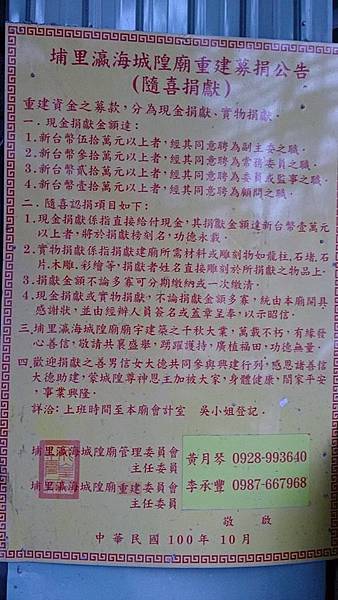 埔里瀛海城隍廟重建募捐公告
(隨喜捐獻)
重建資金之募款，分為現金捐獻．實物捐獻．
一．現金捐獻金額達：
1.新台幣伍拾萬元以上者，經其同意聘為副主委之職．
2.新台幣參拾萬元以上者，經其同意聘為常務委員之職．
3.新台幣貳拾萬元以上者，經其同意聘為委員或監事之職．
4.新台幣壹拾萬元以上者，經其同意聘為顧問之職．
二．隨喜認捐項目如下：
1.現金捐獻係指直接給付現金，其捐獻金額達新台幣壹萬元
以上者，將於捐獻榜刻名，功德永載．
2.實物捐獻係指捐獻建廟所需材料或雕刻物如龍柱．石堵．石
片．木雕．彩繪等，捐獻者姓名直接雕刻於所捐獻之物品上．
3.捐獻金額不論多寡可分期繳納或一次繳清．
4.現金捐獻或實物捐獻，不論捐獻金額多寡，統由本廟開具
感謝狀，並由經辦人員簽名或蓋章呈奉，以示昭信．
三．埔里瀛海城隍廟廟宇建築之千秋大業，萬載不朽，有緣發
心善信，敬請共襄盛舉，踴躍護持，廣植福田，功德無量．
四．歡迎捐獻之善男信女大德共同參與興建行列，感恩諸善信
大德助建，蒙城隍尊神恩主加被大家，身體健康，閤家平安
，事業興隆．
詳洽：上班時間至本廟會計室　吳小姐登記．
埔里瀛海城隍廟管理委員會
主任委員 黃月琴 0928-993640
埔里瀛海城隍廟重建委員會
主任委員 李承豐 0987-667968
敬　啟
中華民國100年10月